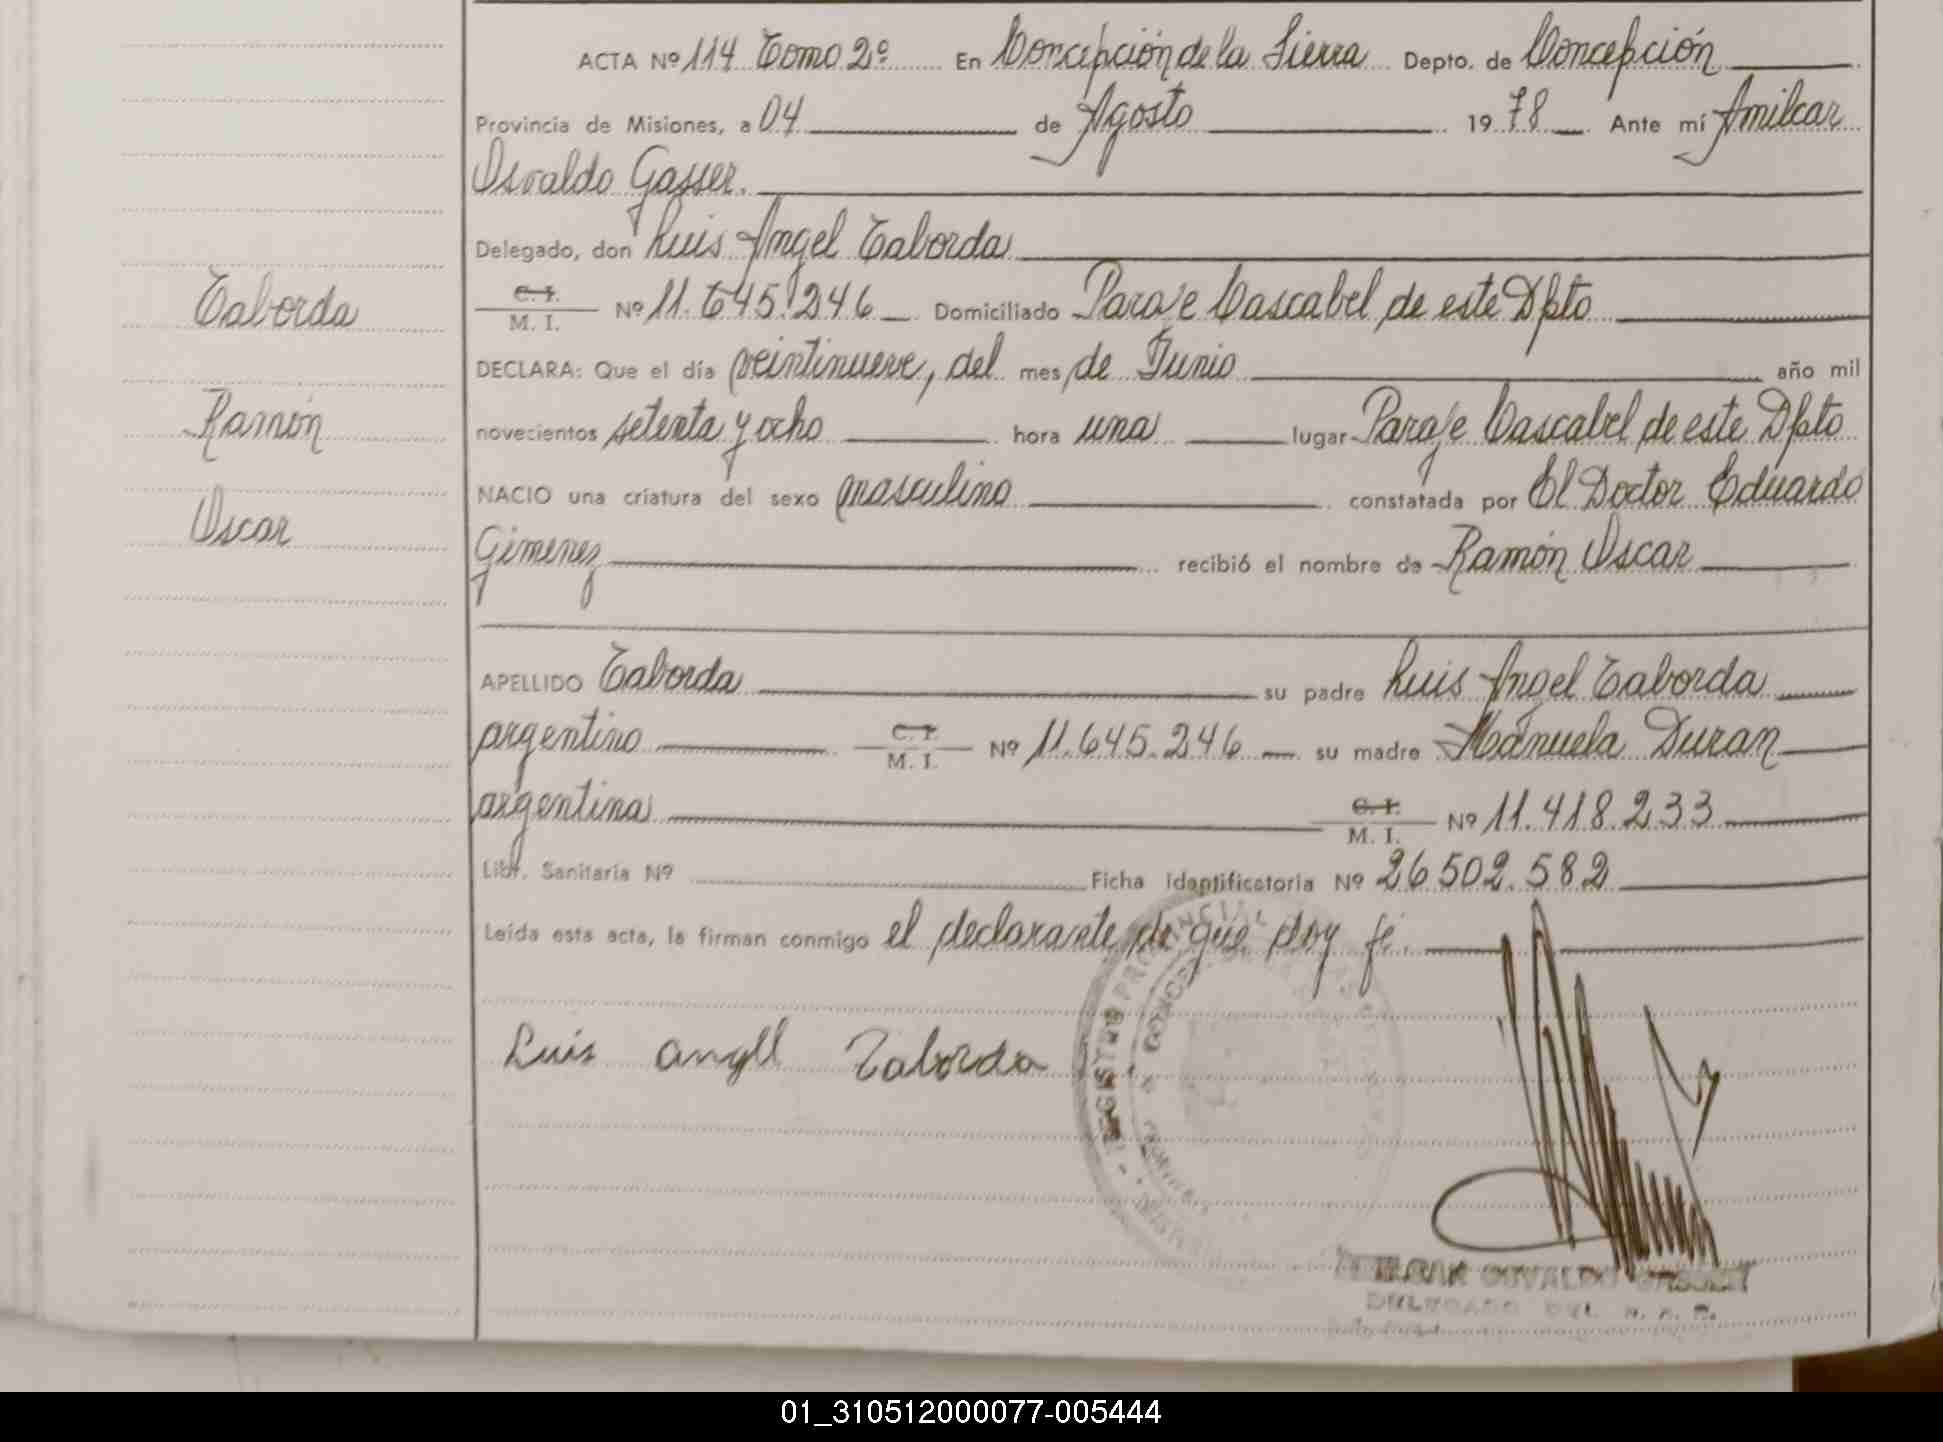 ACTA Nº 114 Tomo 2º En Concepción de la Sierra Depto. de Concepción
Provincia de Misiones, a 04 de Agosto 1978 Ante mí Amilcar
Osvaldo Gasser.
Delegado, don Luis Angel Taborda
C. I. / M. I. Nº 11.645.246 Domiciliado Paraje Cascabel de este Dpto
DECLARA: Que el día veintinueve, del mes de Junio año mil
novecientos setenta y ocho hora una lugar Paraje Cascabel de este Dpto
NACIO una criatura del sexo masculino constatada por El Doctor Eduardo
Gimenez recibió el nombre de Ramón Oscar
APELLIDO Taborda su padre Luis Angel Taborda
argentino C. I. / M. I. Nº 11.645.246 su madre Manuela Duran
argentina C. I. / M. I. Nº 11.418.233
Libr. Sanitaria Nº Ficha Identificatoria Nº 26.502.582
Leída esta acta, la firman conmigo el declarante de que doy fé.
Luis angel Taborda
REGISTRO PROVINCIAL
AMILCAR OSVALDO GASSER
DELEGADO DEL R. P. P.
Taborda
Ramón
Oscar
01_310512000077-005444